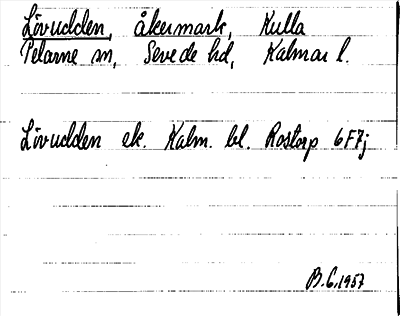 Lövudden, åkermark, Kulla
Pelarne sn, Sevede hd, Kalmar l.
Lövudden ek. Kalm. bl. Rostorp 6F7j
B.G. 1957